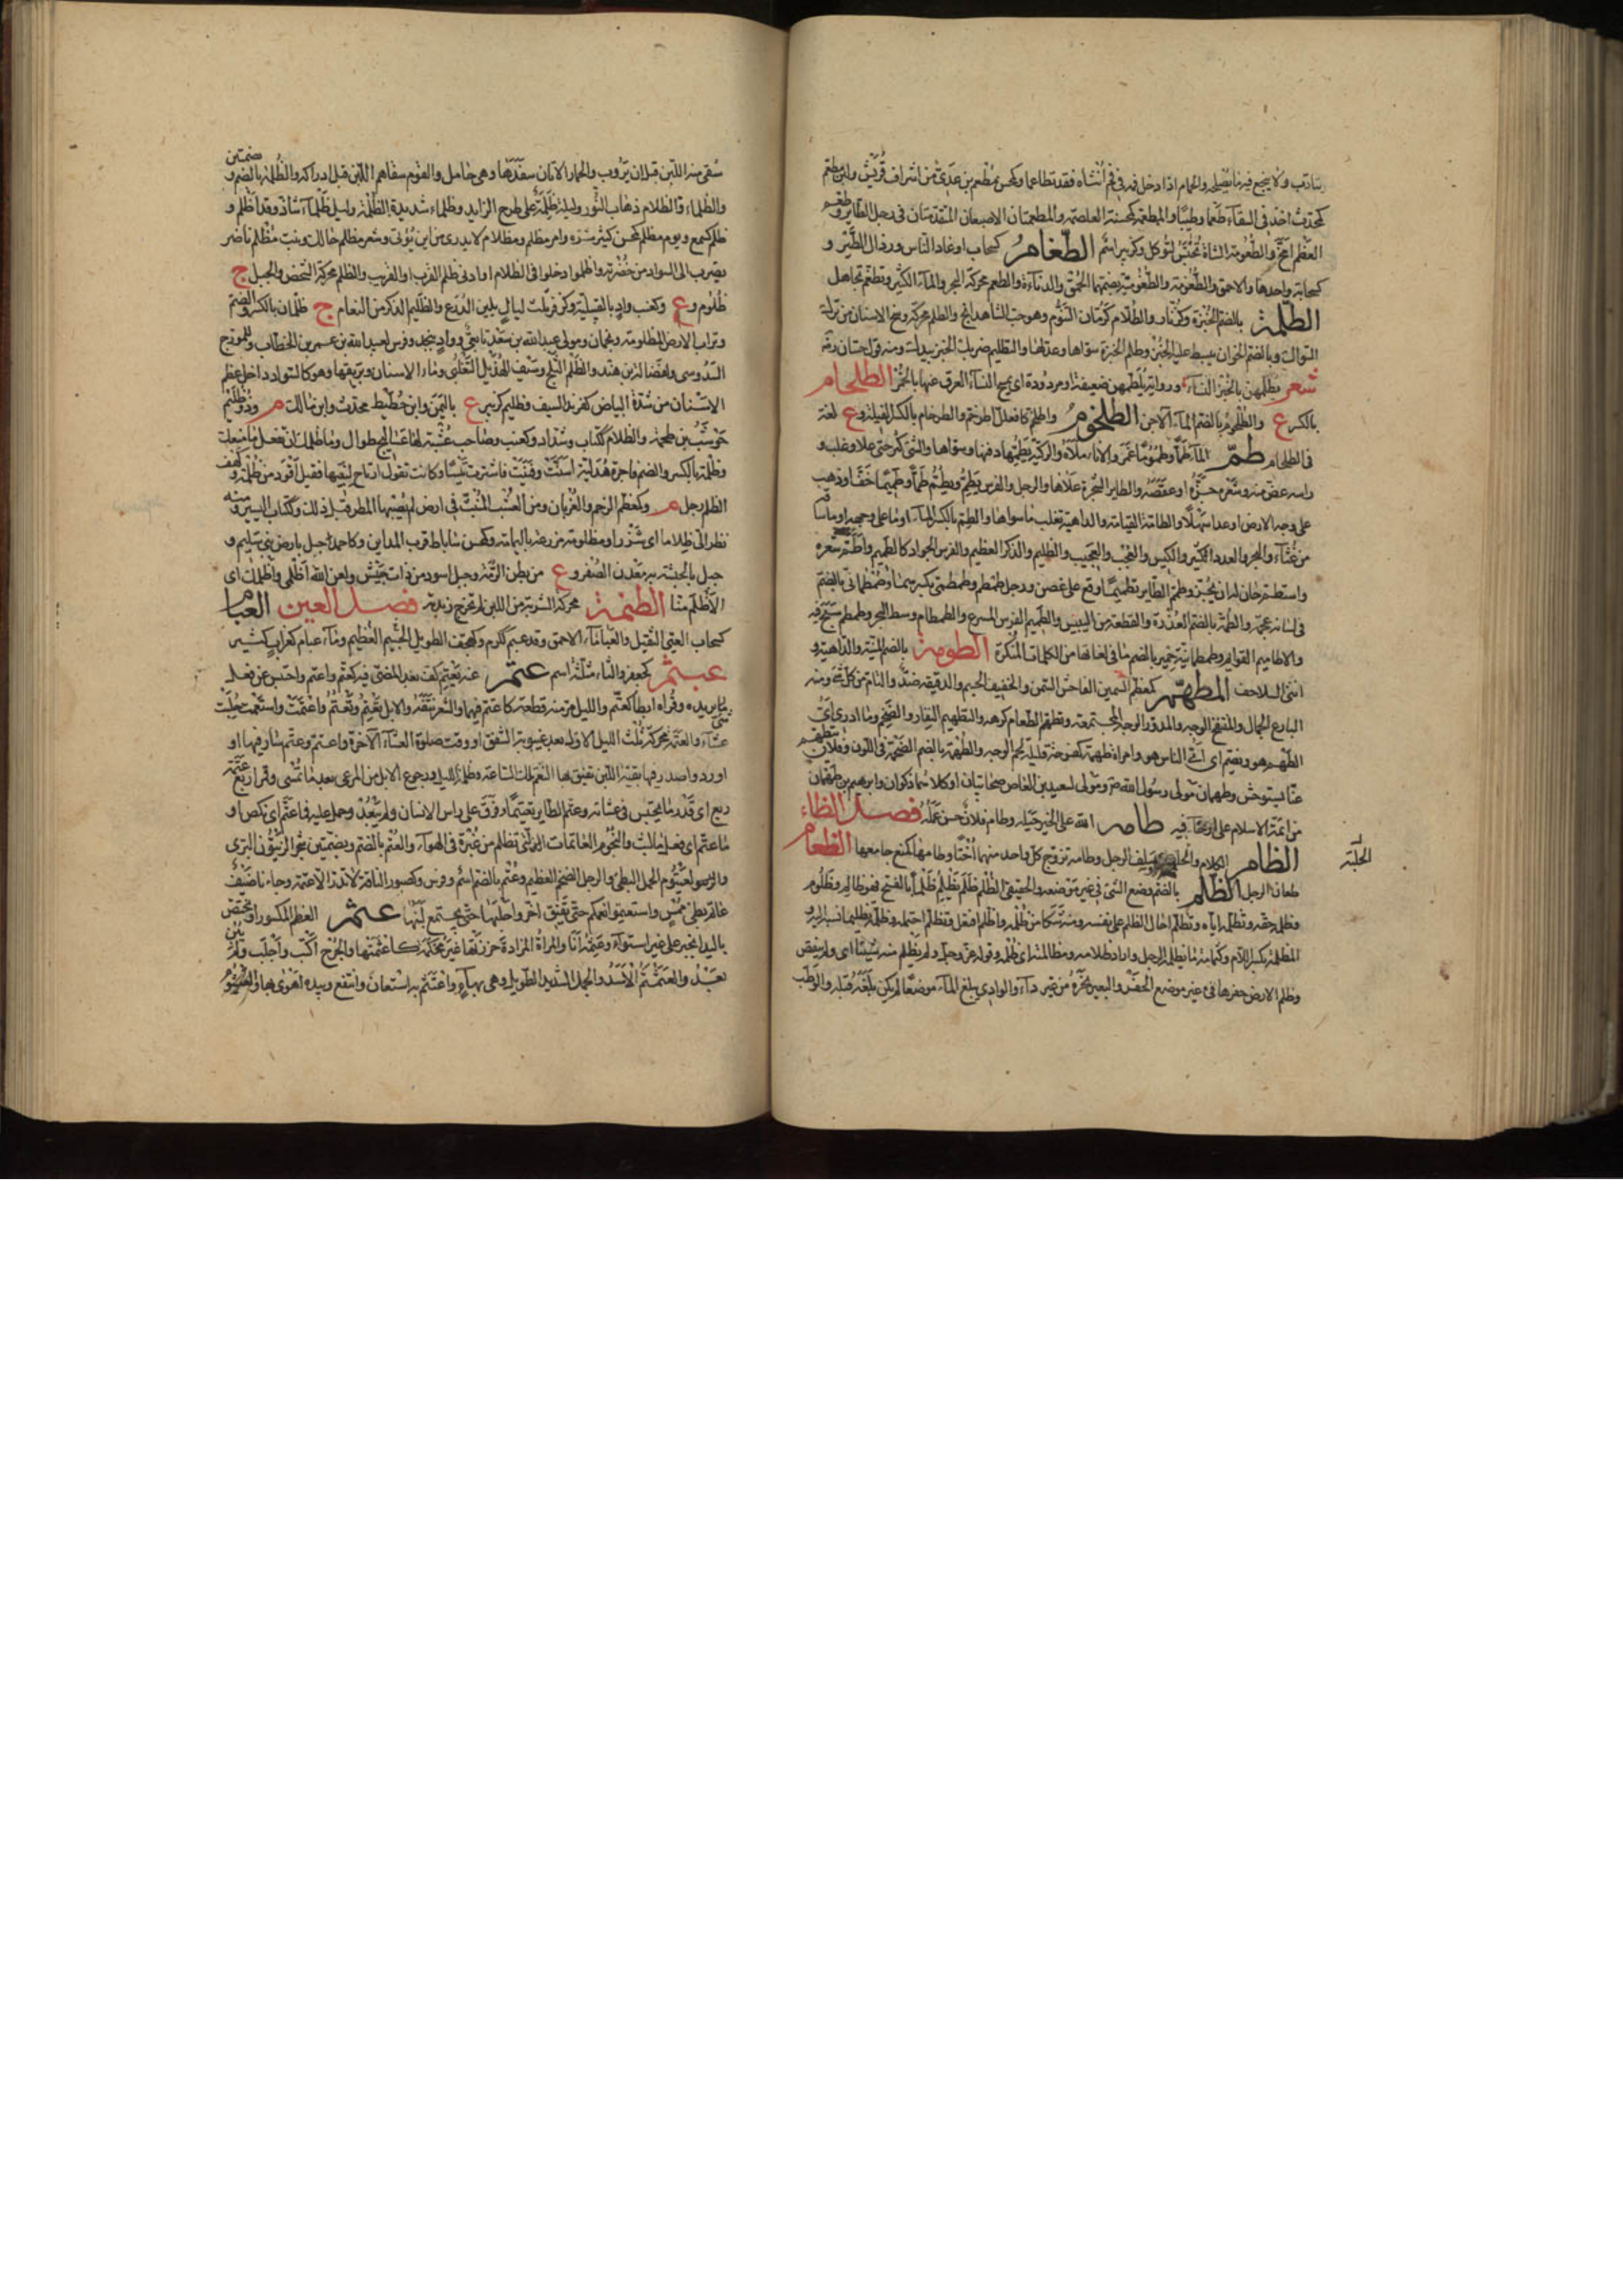 كمحدث اخذ في السقاء طعما وطيبا والمطعمة كمحسنة الغلصمة والمطعمتان الاصبعان المتقدمتان في رجل الطاير وطعم
العظم امخ والطعومة الشاة تحبس لتوكل وكزبير اسم الطغام كسحاب اوغاد الناس ورذال الطير و
كسحابة واحدها والاحمق والطغومة والطغومية بضمهما الحمق والدناءة والطغم محركة البحر والماء الكثير وتطغم تجاهل
الطلمة بالضم الخبزة وككتاب والطلام كرمان التنوم وهو حب الشاهدانج والطلم محركة وسخ الاسنان من ترك
السواك وبالضم الخوان يبسط عليه الخبز وطلم الخبزة سواها وعدلها والتطليم ضربك الخبز بيدك ومنه قول حسان رضه
شعر يطلمهن بالخمر النساء ورواية يلطمهن ضعيفة او مردودة اي يمسح النساء العرق عنها بالخمر الطلحام
بالكسر ع والطلحوم بالضم الماء الآجن الطلخوم واطلخم كافعلل اطرخم والطرخام بالكسر الفيلة وع لغة
في الطلحام طم الماء طما وطموما غمر والاناء ملأه والركية يطمها دفنها وسواها والشيء كثر حتى علا وغلب و
راسه عض منه وشعره جزه او عقصه والطاير الشجرة علاها والرجل والفرس يطم ويطم طما وطميما خف او ذهب
على وجه الارض او عدا سهلا والطامة القيامة والداهية تغلب ما سواها والطم بالكسر الماء او ما على وجهه او ما ساقه
من غثاء والبحر والعدد الكثير والكيس والعجب والعجيب والظليم والذكر العظيم والفرس الجواد كالطميم واطم شعره
واستطم حان له ان يجز وطمم الطاير تطميما وقع على غصن ورجل طمطم وطمطمي بكسرهما وطمطماني بالضم
في لسانه عجمة والطمة بالضم العذرة والقطعة من اليبيس والطميم الفرس المسرع والطمطام وسط البحر وطمطم سبح فيه
والاطاميم القوايم وطمطمانية حمير بالضم ما في لغاتها من الكلمات المنكرة الطومة بالضم المنية والداهية و
انثى السلاحف المطهم كمعظم السمين الفاحش السمن والنحيف الجسم والدقيقه ضد والتام من كل شيء ومنه
البارع الجمال والمنتفخ الوجه والمدور الوجه المجتمعه وتطهم الطعام كرهه والتطهيم النفار والضخم وما ادري اي
الطهم هو ويضم اي اي الناس هو وامراة طهمة كفرحة قليلة لحم الوجه والطهمة بالضم الضحمة في اللون وفلان يتطهم
عنا يستوحش وطهمان مولى رسول الله ص ومولى لسعيد بن العاص صحابيان او كلاهما ذكوان وابرهيم بن طهمان
من ائمة الاسلام على ارجاء فيه طام الله على الخير جبله وطام فلان حسن عمله فصل الظاء
الظام الكلام والجلبة وسلف الرجل وظامه تزوج كل واحد منهما اختا وظامها كمنع جامعها الظعام
الجلبة
ظعان الرحل الظلم بالضم وضع الشيء في غير موضعه والحقيقي الظلم ظلم يظلم ظلما بالفتح فهو ظالم وظلوم
وظلمه حقه وتظلمه اياه وتظلم احال الظلم على نفسه ومنه شكا من ظلمه واظلم افتعل وتظلم احتمله وظلمه تظليما نسبه اليه و
المظلمة بكسر اللام وكثمامة ما تظلمه الرجل واراد ظلامه ومظالمته اي ظلمه وقوله عز وجل ولم تظلم منه شيئا اي ولم تنقص
وظلم الارض حفرها في غير موضع الحفر والبعير نحره من غير داء والوادي بلغ الماء موضعا لم يكن بلغه قبله والوطب
سقى منه اللبن قبل ان يروب والحمار الاتان سفدها وهي حامل والقوم سقاهم اللبن قبل ادراكه والظلمة بالضم و بضمتين
والظلماء والظلام ذهاب النور وليلة ظلمة على طرح الزايد وظلماء شديدة الظلمة وليل ظلماء شاذ وقد اظلم و
ظلم كسمع ويوم مظلم كمحسن كثير شره وامر مظلم ومظلام لا يدرى من اين يؤتى وشعر مظلم حالك ونبت مظلم ناضر
يضرب الى السواد من خضرته واظلموا دخلوا في الظلام او ادنى ظلم القرب او القريب والظلم محركة الشخص والجبل ج
ظلوم وع وكعنب واد بالقبلية وكزفر ثلث ليال يلين الدرع والظليم الذكر من النعام ج ظلمان بالكسر والضم
وتراب الارض المظلومة ونجمان ومولى عبد الله بن سعد تابعي وواد بنجد وفرس لعبد الله بن عمر بن الخطاب وللمورج
السدوسي ولفضالة بن هند والظلم الثلج وسيف الهذيل التغلبي وماء الاسنان وبريقها وهو كالسواد داخل عظم
الاسنان من شدة البياض كفرند السيف وظليم كزبير ع باليمن وابن حطيط محدث وابن مالك م وذو ظليم
حوشب بن طخمة والظلام ككتاب وشداد وكعنب وصاحب عشبة لها عساليج طوال وما ظلمك ان تفعل ما منعك
وظلمة بالكسر والضم فاجرة هذلية اسنت وفنيت فاشترت تيسا وكانت تقول ارتاح لنبيبه فقيل اقود من ظلمة وكهف
الظلم رجل م وكمعظم الرخم والغربان ومن العشب المنبث في ارض لم يصبها المطر قبل ذلك وككتاب اليسير ومنه
نظر الي ظلاما اي شزرا ومظلومة مزرعة باليمامة وكمحسن ساباط قرب المداين وكاحمد جبل بارض بني سليم و
جبل بالحبشة به معدن الصفر وع من بطن الرمة وجبل اسود من ذات جيش ولعن الله اظلمي واظلمك اي
الاظلم منا الظنمة محركة الشربة من اللبن لم تخرج زبدته فصل العين العبام
كسحاب العيي الثقيل والعباماء الاحمق وقد عبم ككرم وكهجف الطويل الجسيم العظيم وماء عبام كغراب كثير
عبثم كجعفر والثاء مثلثة اسم عتم عنه يعتم كف بعد المضي فيه كعتم واعتم واحتبس عن فعل
شيء يريده وقراه ابطا كعتم والليل مر منه قطعة كاعتم فيهما والشعر نتفه والابل تعتم وتعتم واعتمت واستعتمت حلبت
عشاء والعتمة محركة ثلث الليل الاول بعد غيبوبة الشفق او وقت صلوة العشاء الآخرة واعتم وعتم سار فيها او
اورد واصدر فيها بقية اللبن تفيق بها النعم تلك الساعة وظلمة الليل ورجوع الابل من المرعى بعد ما تمسي وقمر اربع عتمة
ربع اي قدر ما يحتبس في عشائه وعتم الطاير تعتيما رفرف على راس الانسان ولم يبعد وحمل عليه فما عتم اي نكص او
ما عتم اي فعل ما لبث والنجوم العاتمات التي تظلم من غبرة في الهواء والعتم بالضم وبضمتين شجر الزيتون البري
والعيتوم الجمل البطيء والرجل الضخم العظيم وعتم بالضم اسم وفرس وكصبور الناقة لا تدر الا عتمة وجاءنا ضيف
عاتم بطيء ممس واستعتموا نعمكم حتى تفيق اخروا حلبها حتى يجتمع لبنها عثم العظم المكسور او يختص
باليد انجبر على غير استواء وعثمته انا والمراة المزادة خرزتها غير محكمة كاعتثمتها والجرح اكنب واجلب ولم
يعبد والعثمثم الاسد والجمل الشديد الطويل وهي بهاء واعتثم به استعان وانتفع وبيده اهوى بها والعيثوم